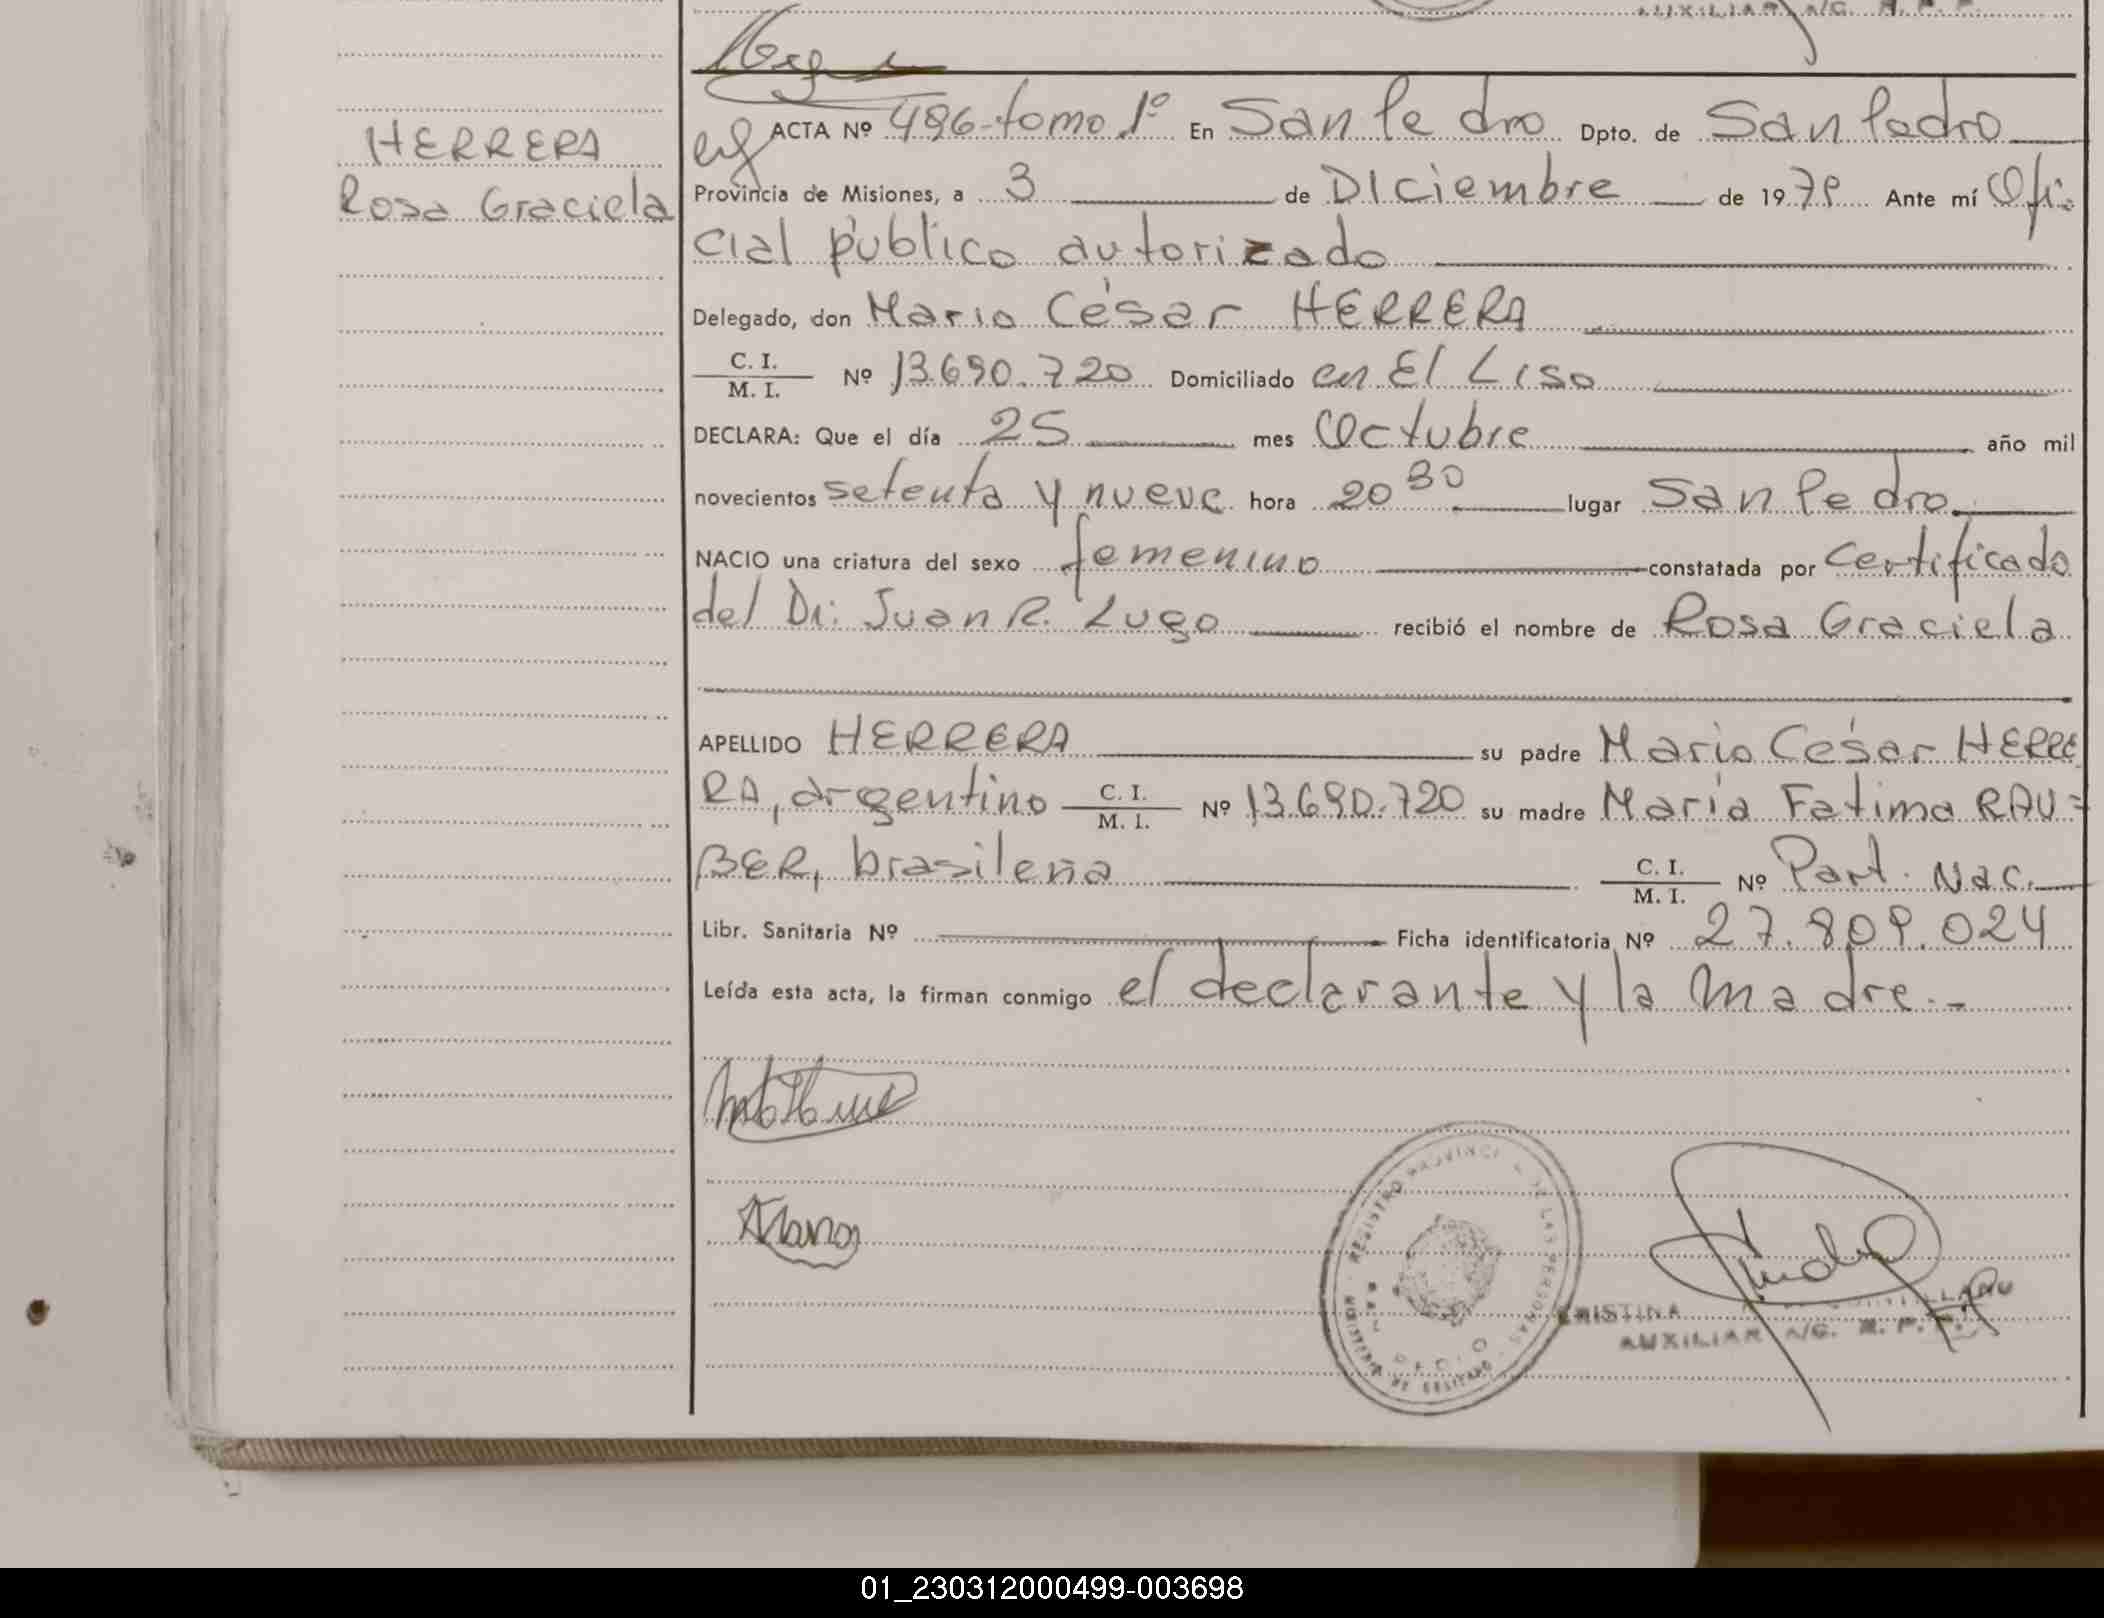 AUXILIAR A/G. R. P. P.
HERRERA
Rosa Graciela
ACTA Nº 496-tomo 1º En San Pedro Dpto. de San Pedro
Provincia de Misiones, a 3 de Diciembre de 1979. Ante mí Ofi-
cial público autorizado
Delegado, don Mario César HERRERA
C. I.
M. I. Nº 13.690.720 Domiciliado en El Liso
DECLARA: Que el día 25 mes Octubre año mil
novecientos setenta y nueve hora 20 30 lugar San Pedro
NACIO una criatura del sexo femenino constatada por Certificado
del Dr. Juan R. Lugo recibió el nombre de Rosa Graciela
APELLIDO HERRERA su padre Mario César HERRE
RA, argentino C. I. M. I. Nº 13.690.720 su madre María Fatima RAU=
BER, brasileña C. I. M. I. Nº Part. Nac.
Libr. Sanitaria Nº Ficha identificatoria Nº 27.809.024
Leída esta acta, la firman conmigo el declarante y la madre.-
REGISTRO PROVINCIAL DE LAS PERSONAS
CRISTINA
AUXILIAR A/G. R. P. P.
01_230312000499-003698